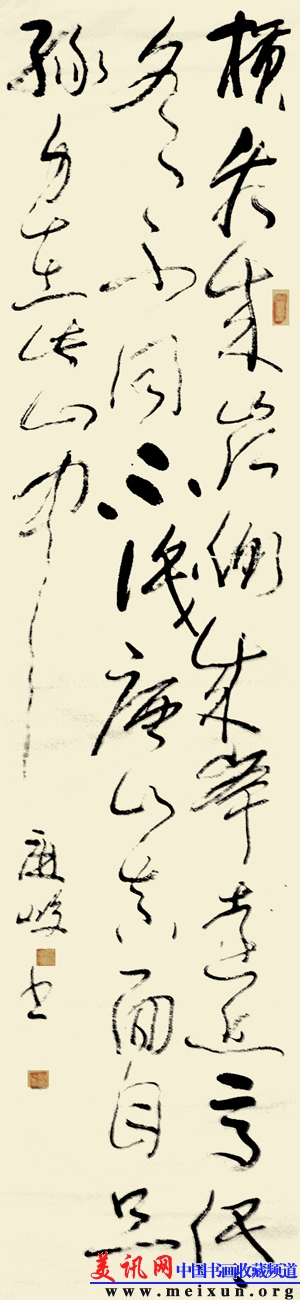 横看成岭侧成峯遠近高低
各不同不識廬山真面目只
緣身在此山中
峻书
美讯网 中国书画收藏频道
www.meixun.org